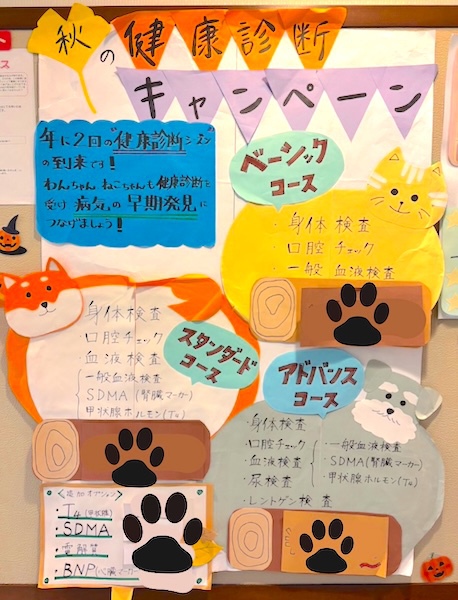 秋の健康診断
キャンペーン
年に2回の"健康診断シーズン"
の到来です!
わんちゃん ねこちゃんも健康診断を
受け 病気の早期発見に
つなげましょう!
ベーシック
コース
・身体検査
・口腔チェック
・一般血液検査
スタンダード
コース
・身体検査
・口腔チェック
・血液検査
・一般血液検査
・SDMA(腎臓マーカー)
・甲状腺ホルモン(T4)
アドバンス
コース
・身体検査
・口腔チェック
・血液検査
・一般血液検査
・SDMA(腎臓マーカー)
・甲状腺ホルモン(T4)
・尿検査
・レントゲン検査
<追加オプション>
・T4(甲状腺)
・SDMA
・電解質
・BNP(心臓マーカー)